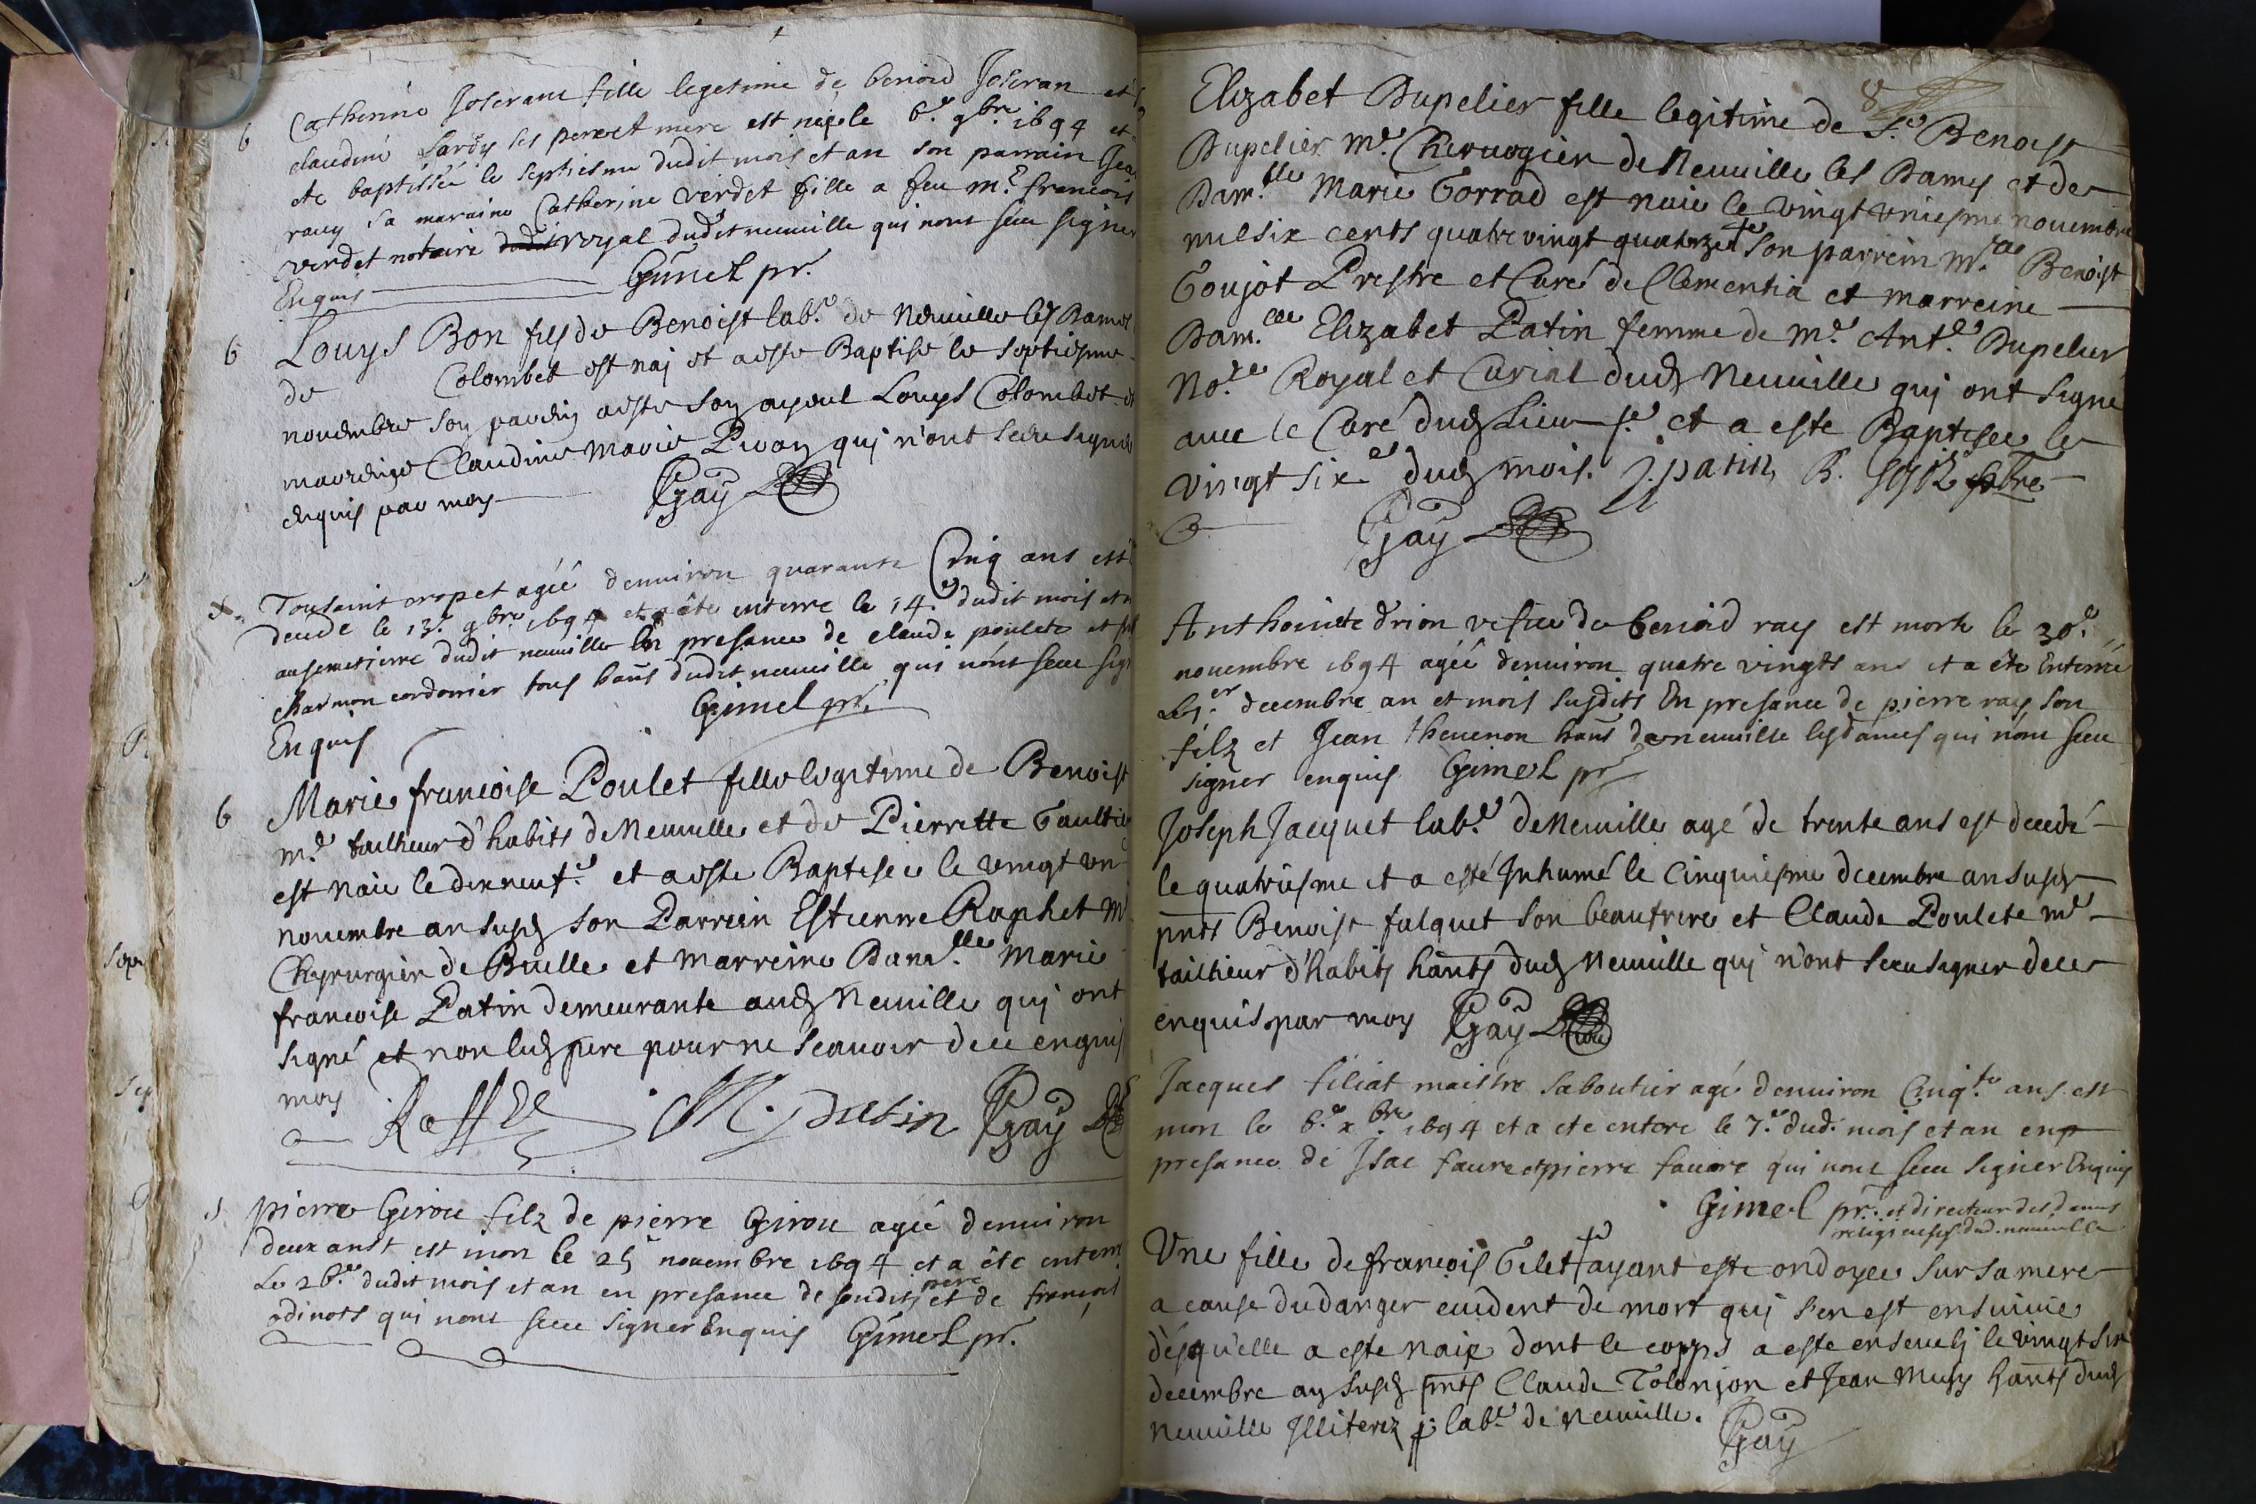 Catherine Joseran fille legetime de benoid Joseran et
6
claudine Saroy ses pere et mere est neje le 6.e 9bre 1694 et
ete baptissée le septiesme dudit mois et an son parrain Jean
ray sa maraine Catherine verdet fille a feu m.e francois
verdet notaire royal dudit neuuille qui nont sceu signer
Enquis Gimel pr.
6
Louys Bon fils de Benoist lab.r de Neuuille les Dames
de Colombet est naj et a este Baptise le septiesme
nouembre son parrin a este son ayeul Louys Colombet et
marreine Claudine Marie Pivon qui n'ont sceu signer
enquis par moy Gay
Tousaint cropet agéé denuiron quarante Cinq ans est
decede le 13.e 9bre 1694 et a été enterre le 14.e dudit mois et an
au semetierre dudit neuuille En presance de claude poulete et
charmon cordonier tous hans dudit neuuille qui nont sceu signer
Enquis Gimel pr.
6
Marie francoise Poulet fille legitime de Benoist
m.e tailheur d'habits de Neuuille et de Pierrette Gaultier
est naie le dixneuf.e et a este Baptisée le vingt un
nouembre an susd son Parrein Estienne Raphet M
Chyrurgien de Buelle et marreine Dam.lle Marie
francoise Patin demeurante aud Neuuille qui ont
signé et non lud pere pour ne scauoir de ce enquis
moy
Raffet M. patin Gay
pierre Girou filz de pierre Girou agéé denuiron
deux anst est mort le 25 nouembre 1694 et a été enterre
Le 26.e dudit mois et an en presance de sondits pere et de francois
odinots qui nont sceu signer Enquis Gimel pr.
8
Elizabet Dupelier fille legitime de S.r Benoist
Dupelier M.e Chiruogien de Neuuille les Dames et de
Dam.lle Marie Gorrad est naie le vingt uniesme nouembre
mil six cents quatre vingt quatorze son parrein M.re Benoist
Goujot Prestre et Curé de Clementia et marreine
Dam.lle Elizabet Patin femme de M.e Ant.e Dupelier
No.re Royal et Curial dud Neuuille qui ont signé
auec le Curé dud Lieu et a este Baptisee le
vingt six.e dud mois. J. patin B. ptre
Gay
Anthoinete drion vefue de benoid ray est morte le 30.e
nouembre 1694 agéé denuiron quatre vingts ans et a éte Enterréé
Le 1.er decembre an et mois susdits En presance de pierre ray son
filz et Jean theuenon hans de neuuille lesdames qui nont sceu
signer enquis Gimel pr
Joseph Jacquet lab.r de Neuuille agé de trente ans est decedé
le quatriesme et a esté Inhumé le Cinquiesme decembre an susd
pnts Benoist falquet son beaufrere et Claude Poulete m.e
tailheur d'habits hants dud Neuuille qui n'ont sceu signer de ce
enquis par moy Gay
Jacques filiat maistre saboutier agé denuiron Cinq.te ans est
mort le 6.e xbre 1694 et a ete enterre le 7.e dud. mois et an en
presance de Isac faure et pierre fauore qui nont sceu signer Enquis
Gimel pr. et directeur des dames
religieuses dud. neuuille
Une fille de francois Gelet ayant este ondoyee sur sa mere
a cause du danger euident de mort qui s'en est ensuiuie
des qu'elle a este naie dont le corps a este enseueli le vingt six
decembre an susd pnts Claude Tolonjon et Jean Musy hants dud
Neuuille Illiterez lab.r de Neuuille. Gay